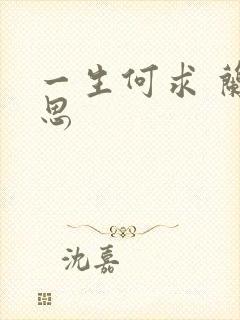 一生何求 蘭
思
沈嘉